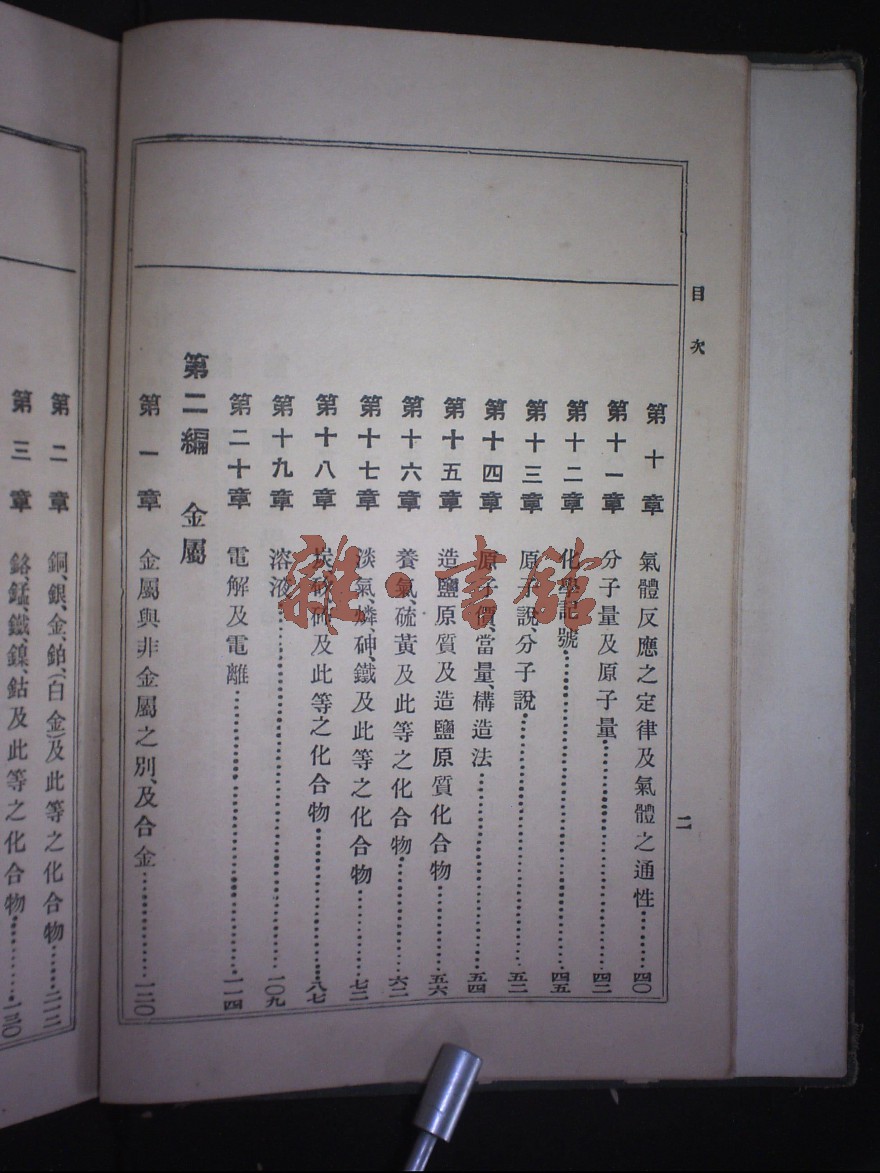 目次
二
第十章 氣體反應之定律及氣體之通性…………四〇
第十一章 分子量及原子量…………四二
第十二章 化學記號…………四五
第十三章 原子說、分子說…………五二
第十四章 原子價、當量、構造法…………五四
第十五章 造鹽原質及造鹽原質化合物…………五六
第十六章 養氣、硫黃及此等之化合物…………六二
第十七章 淡氣、燐、砷、鐵及此等之化合物…………七二
第十八章 炭矽硼及此等之化合物…………八七
第十九章 溶液…………一〇九
第二十章 電解及電離…………一一四
第二編 金屬
第一章 金屬與非金屬之別、及合金…………一二〇
第二章 銅、銀、金、鉑、(白金)及此等之化合物……
第三章 鉻、錳、鐵、鎳、鈷及此等之化合物…………一三〇
雜·書館